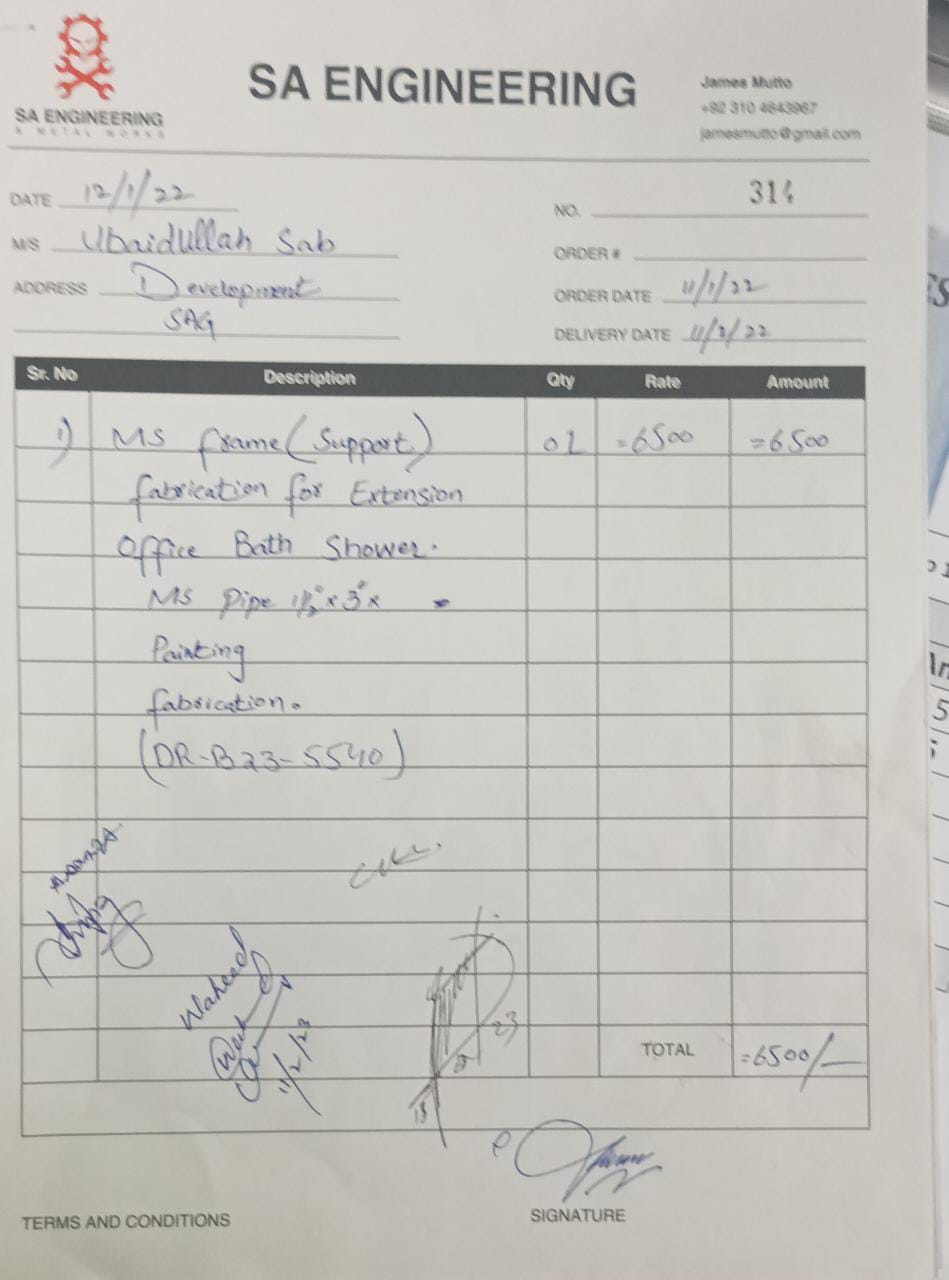 SA ENGINEERING
& METAL WORKS
SA ENGINEERING
James Mutto
+92 310 4643967
jamesmutto@gmail.com
DATE 12/1/22
NO. 314
M/S Ubaidullah Sab
ORDER #
ADDRESS Development
SAG
ORDER DATE 11/1/22
DELIVERY DATE 11/2/22
Sr. No Description Qty Rate Amount
1) MS frame (Support) 01 =6500 =6500
fabrication for Extension
Office Bath Shower.
MS Pipe 1½"x3"x
Painting
fabrication.
(DR-B23-5540)
Waheed
11/2/23
23
TOTAL =6500/-
SIGNATURE
TERMS AND CONDITIONS